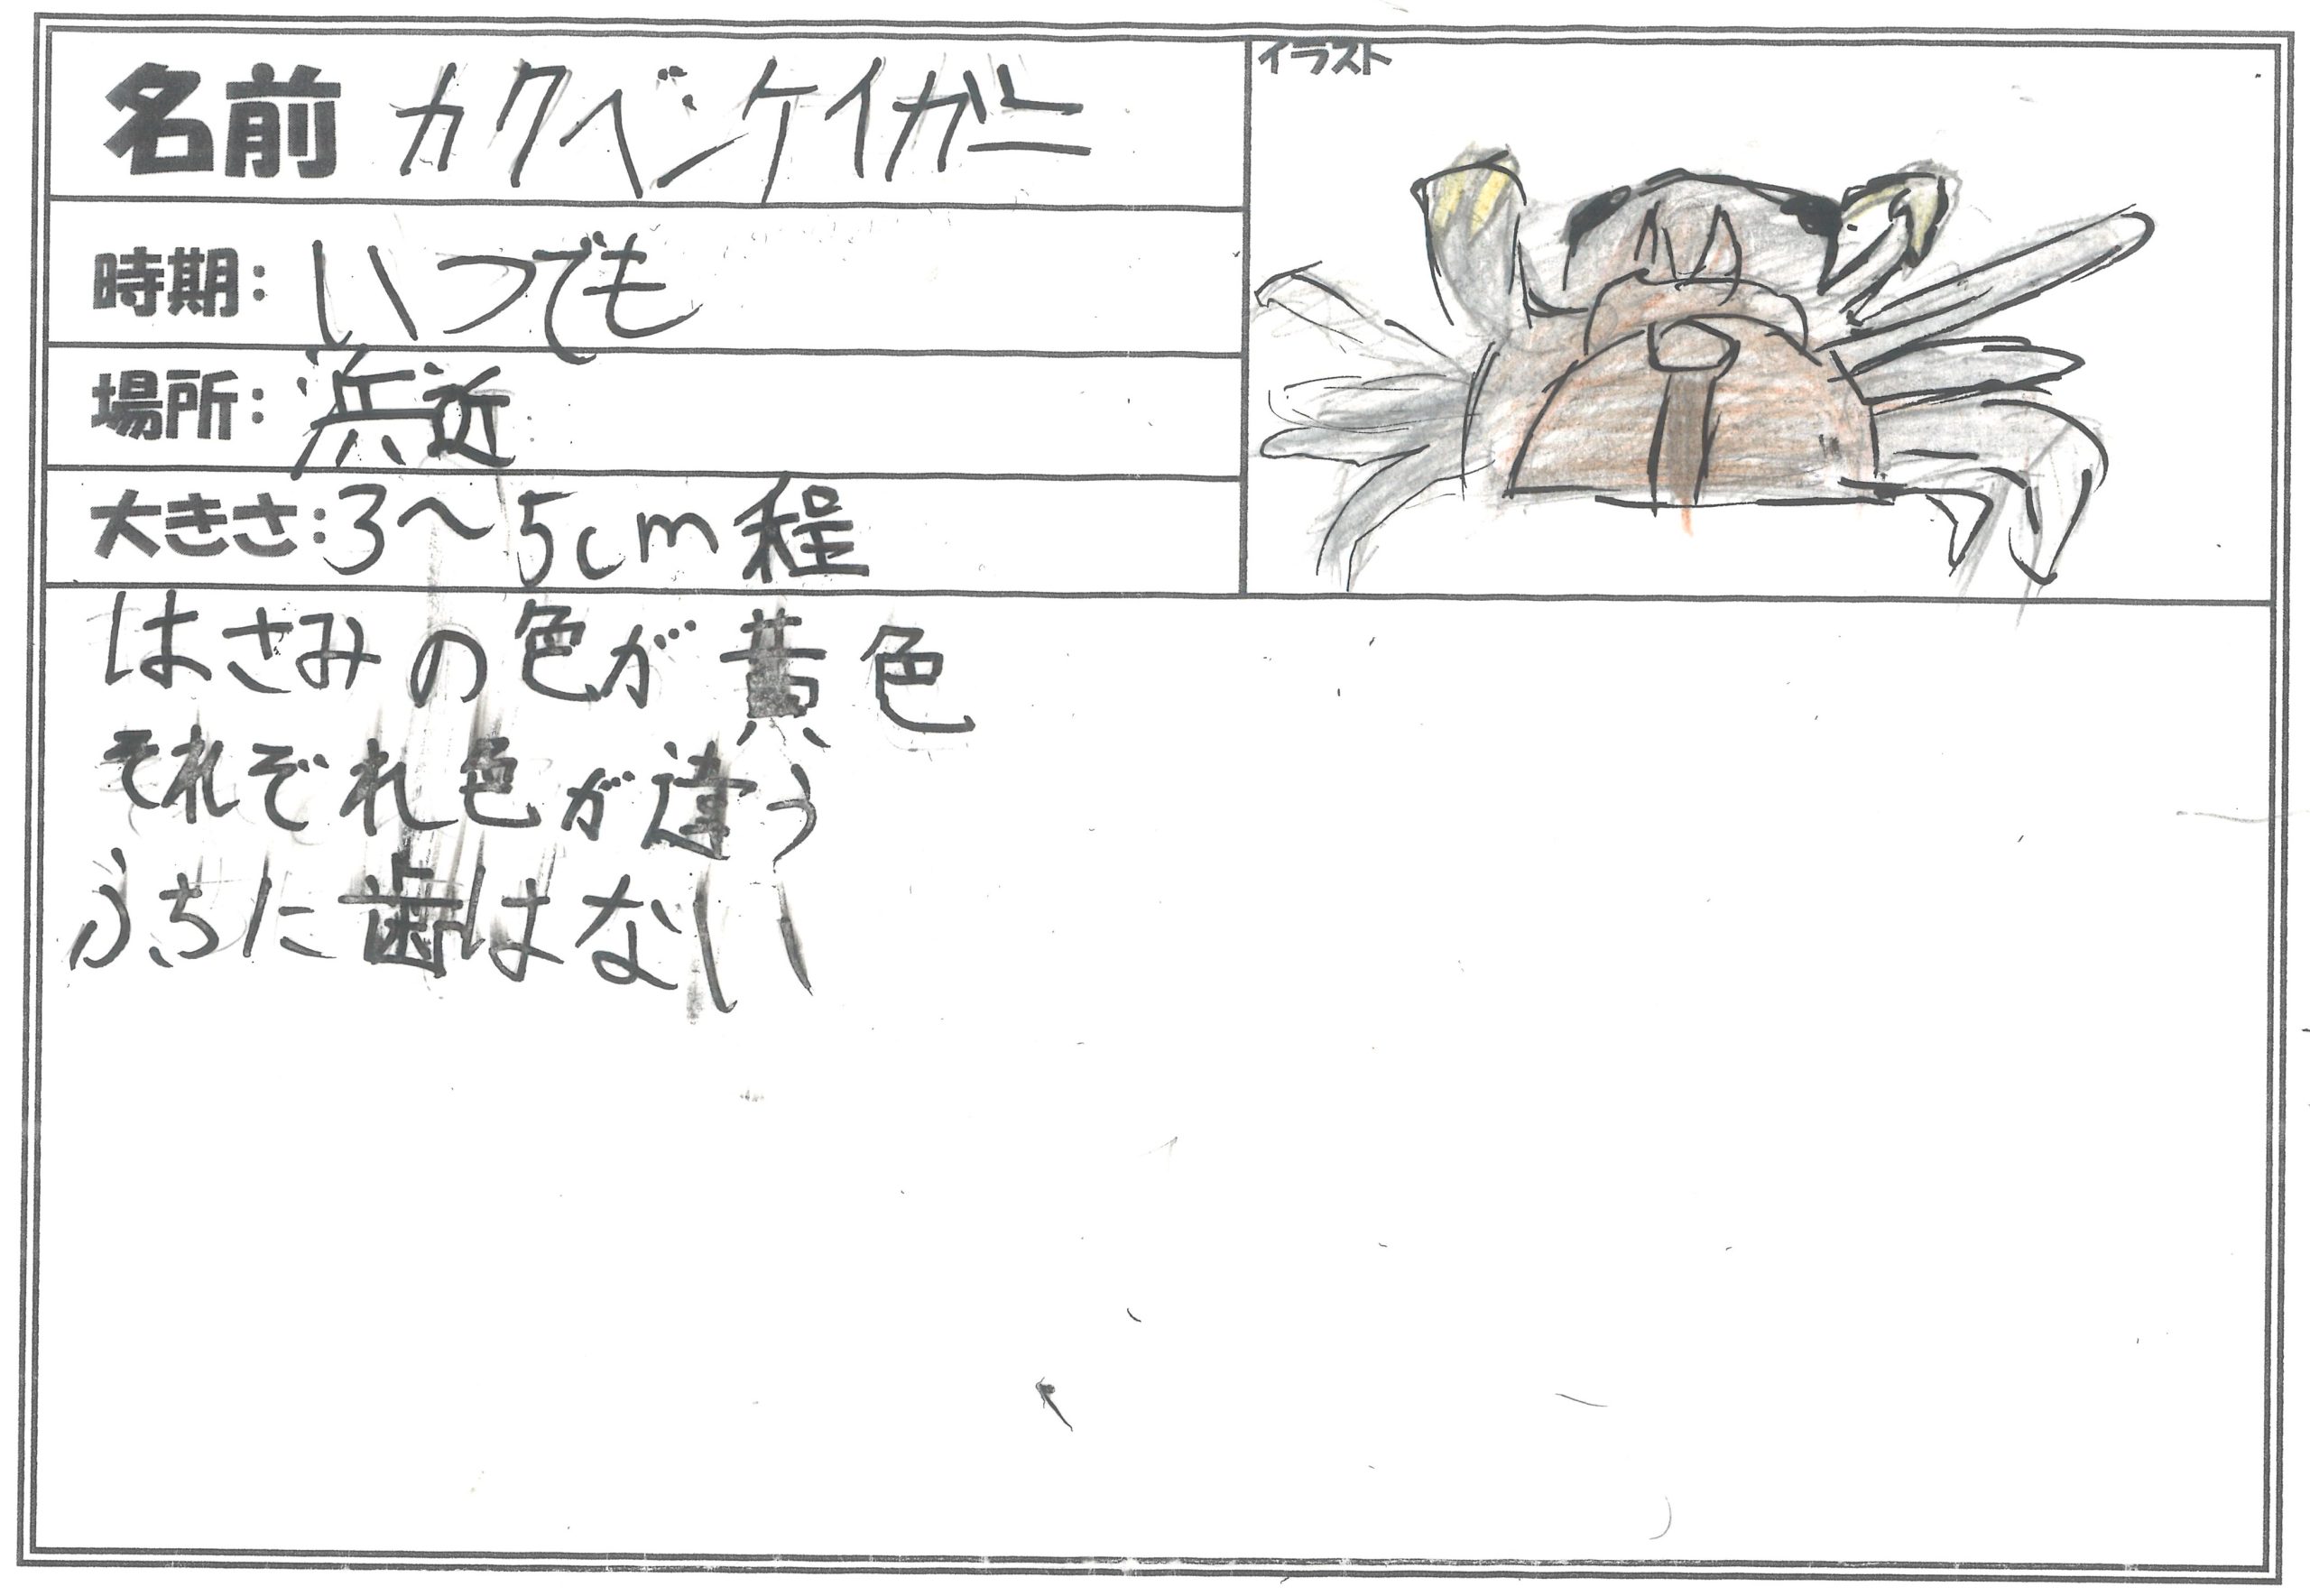 名前 カクベンケイガニ
イラスト
時期：いつでも
場所：浜近
大きさ：3〜5cm程
はさみの色が黄色
それぞれ色が違う
ふちに歯はない